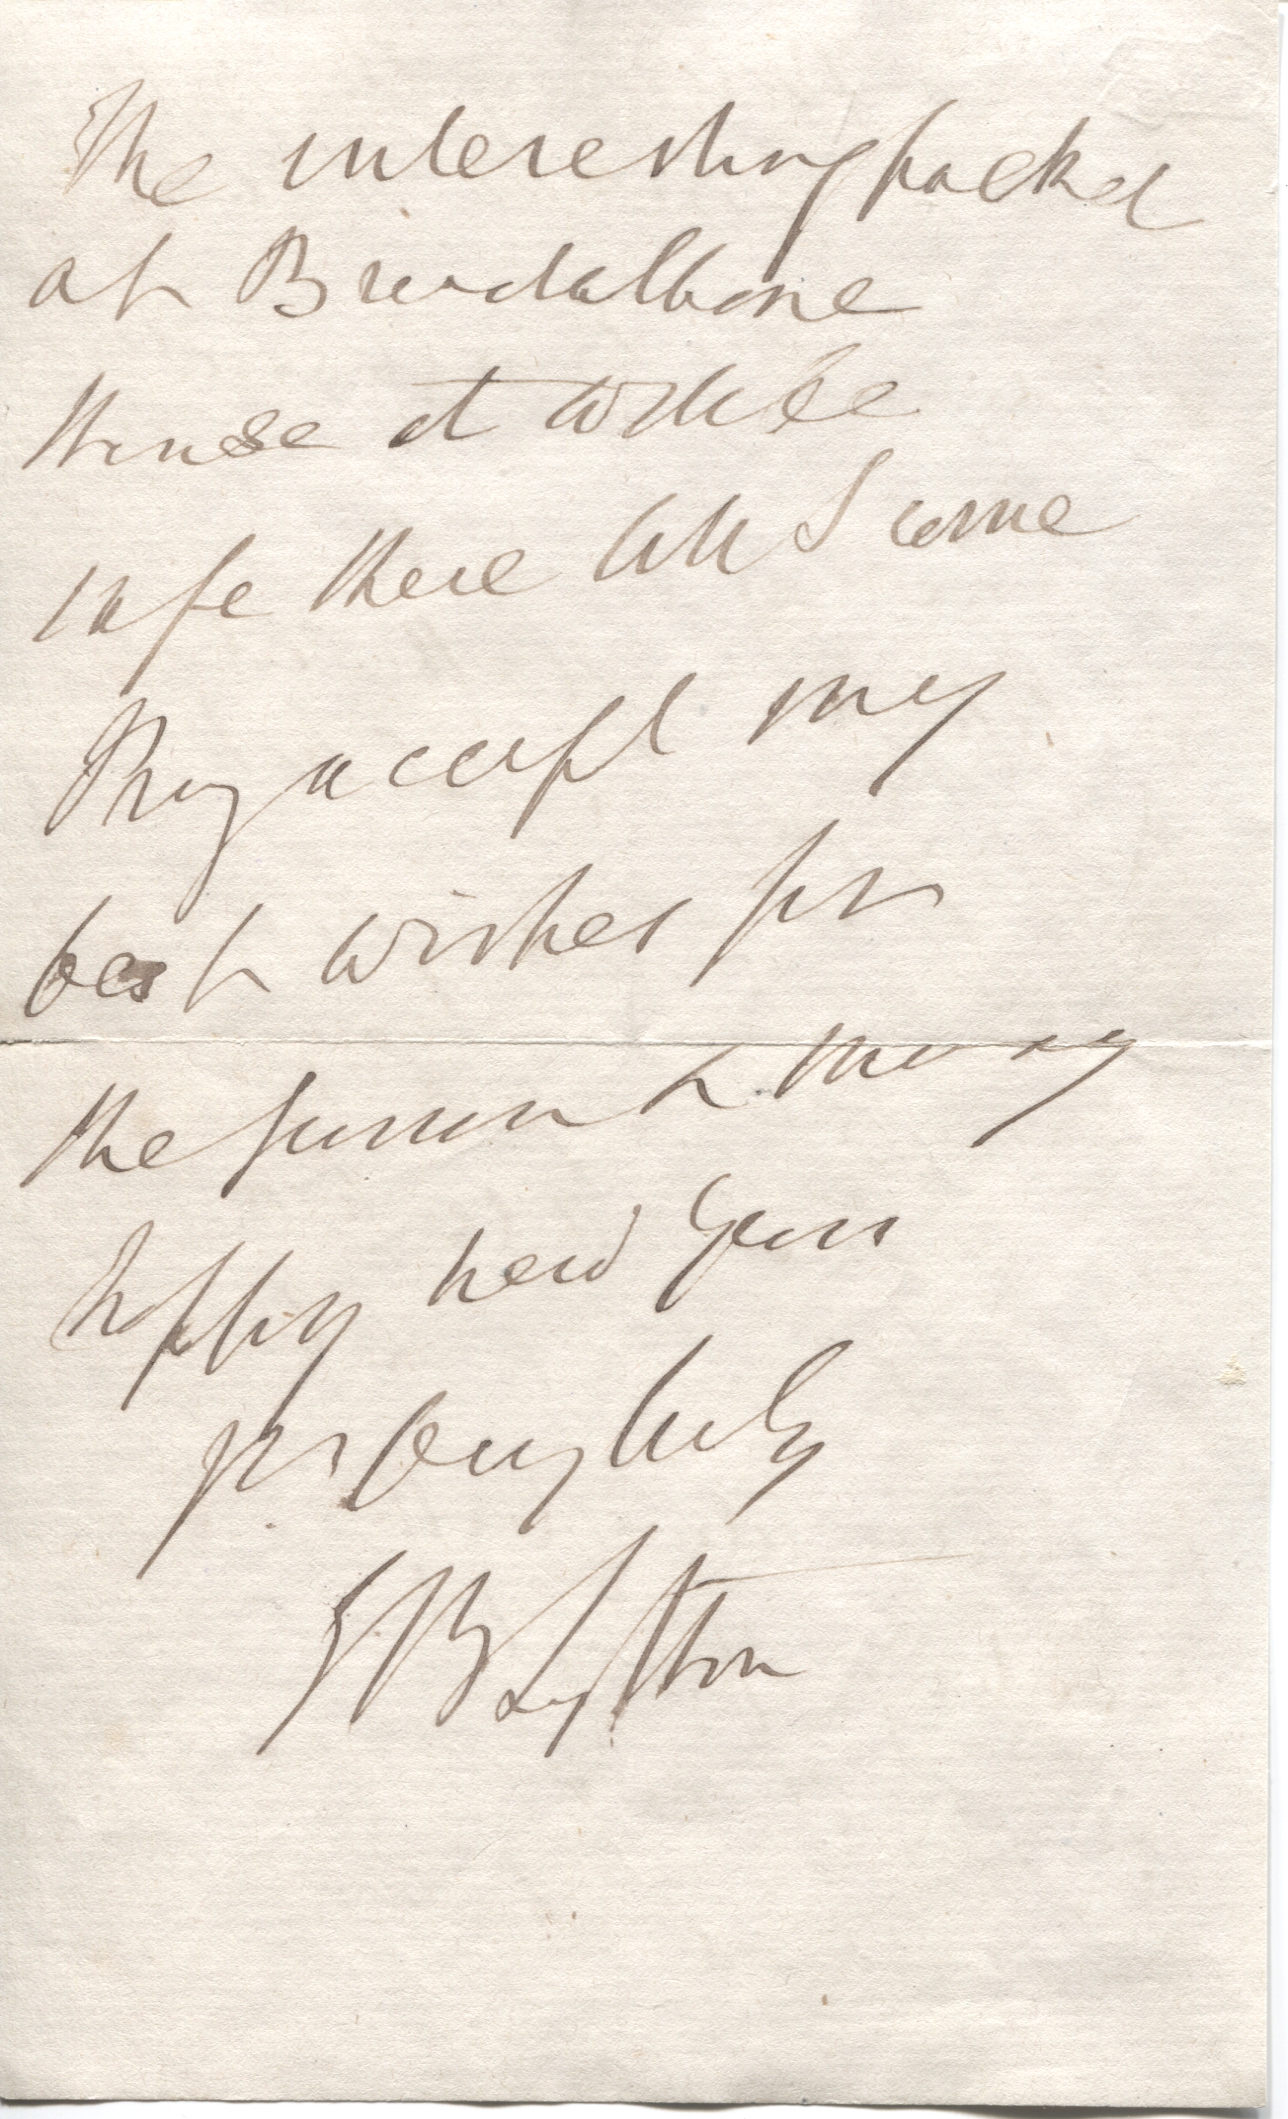 The interesting packet
at Breadalbane
House it will be
safe there till I come
Pray accept my
best wishes for
the Season & many
happy new Years
yrs very truly
EBLytton